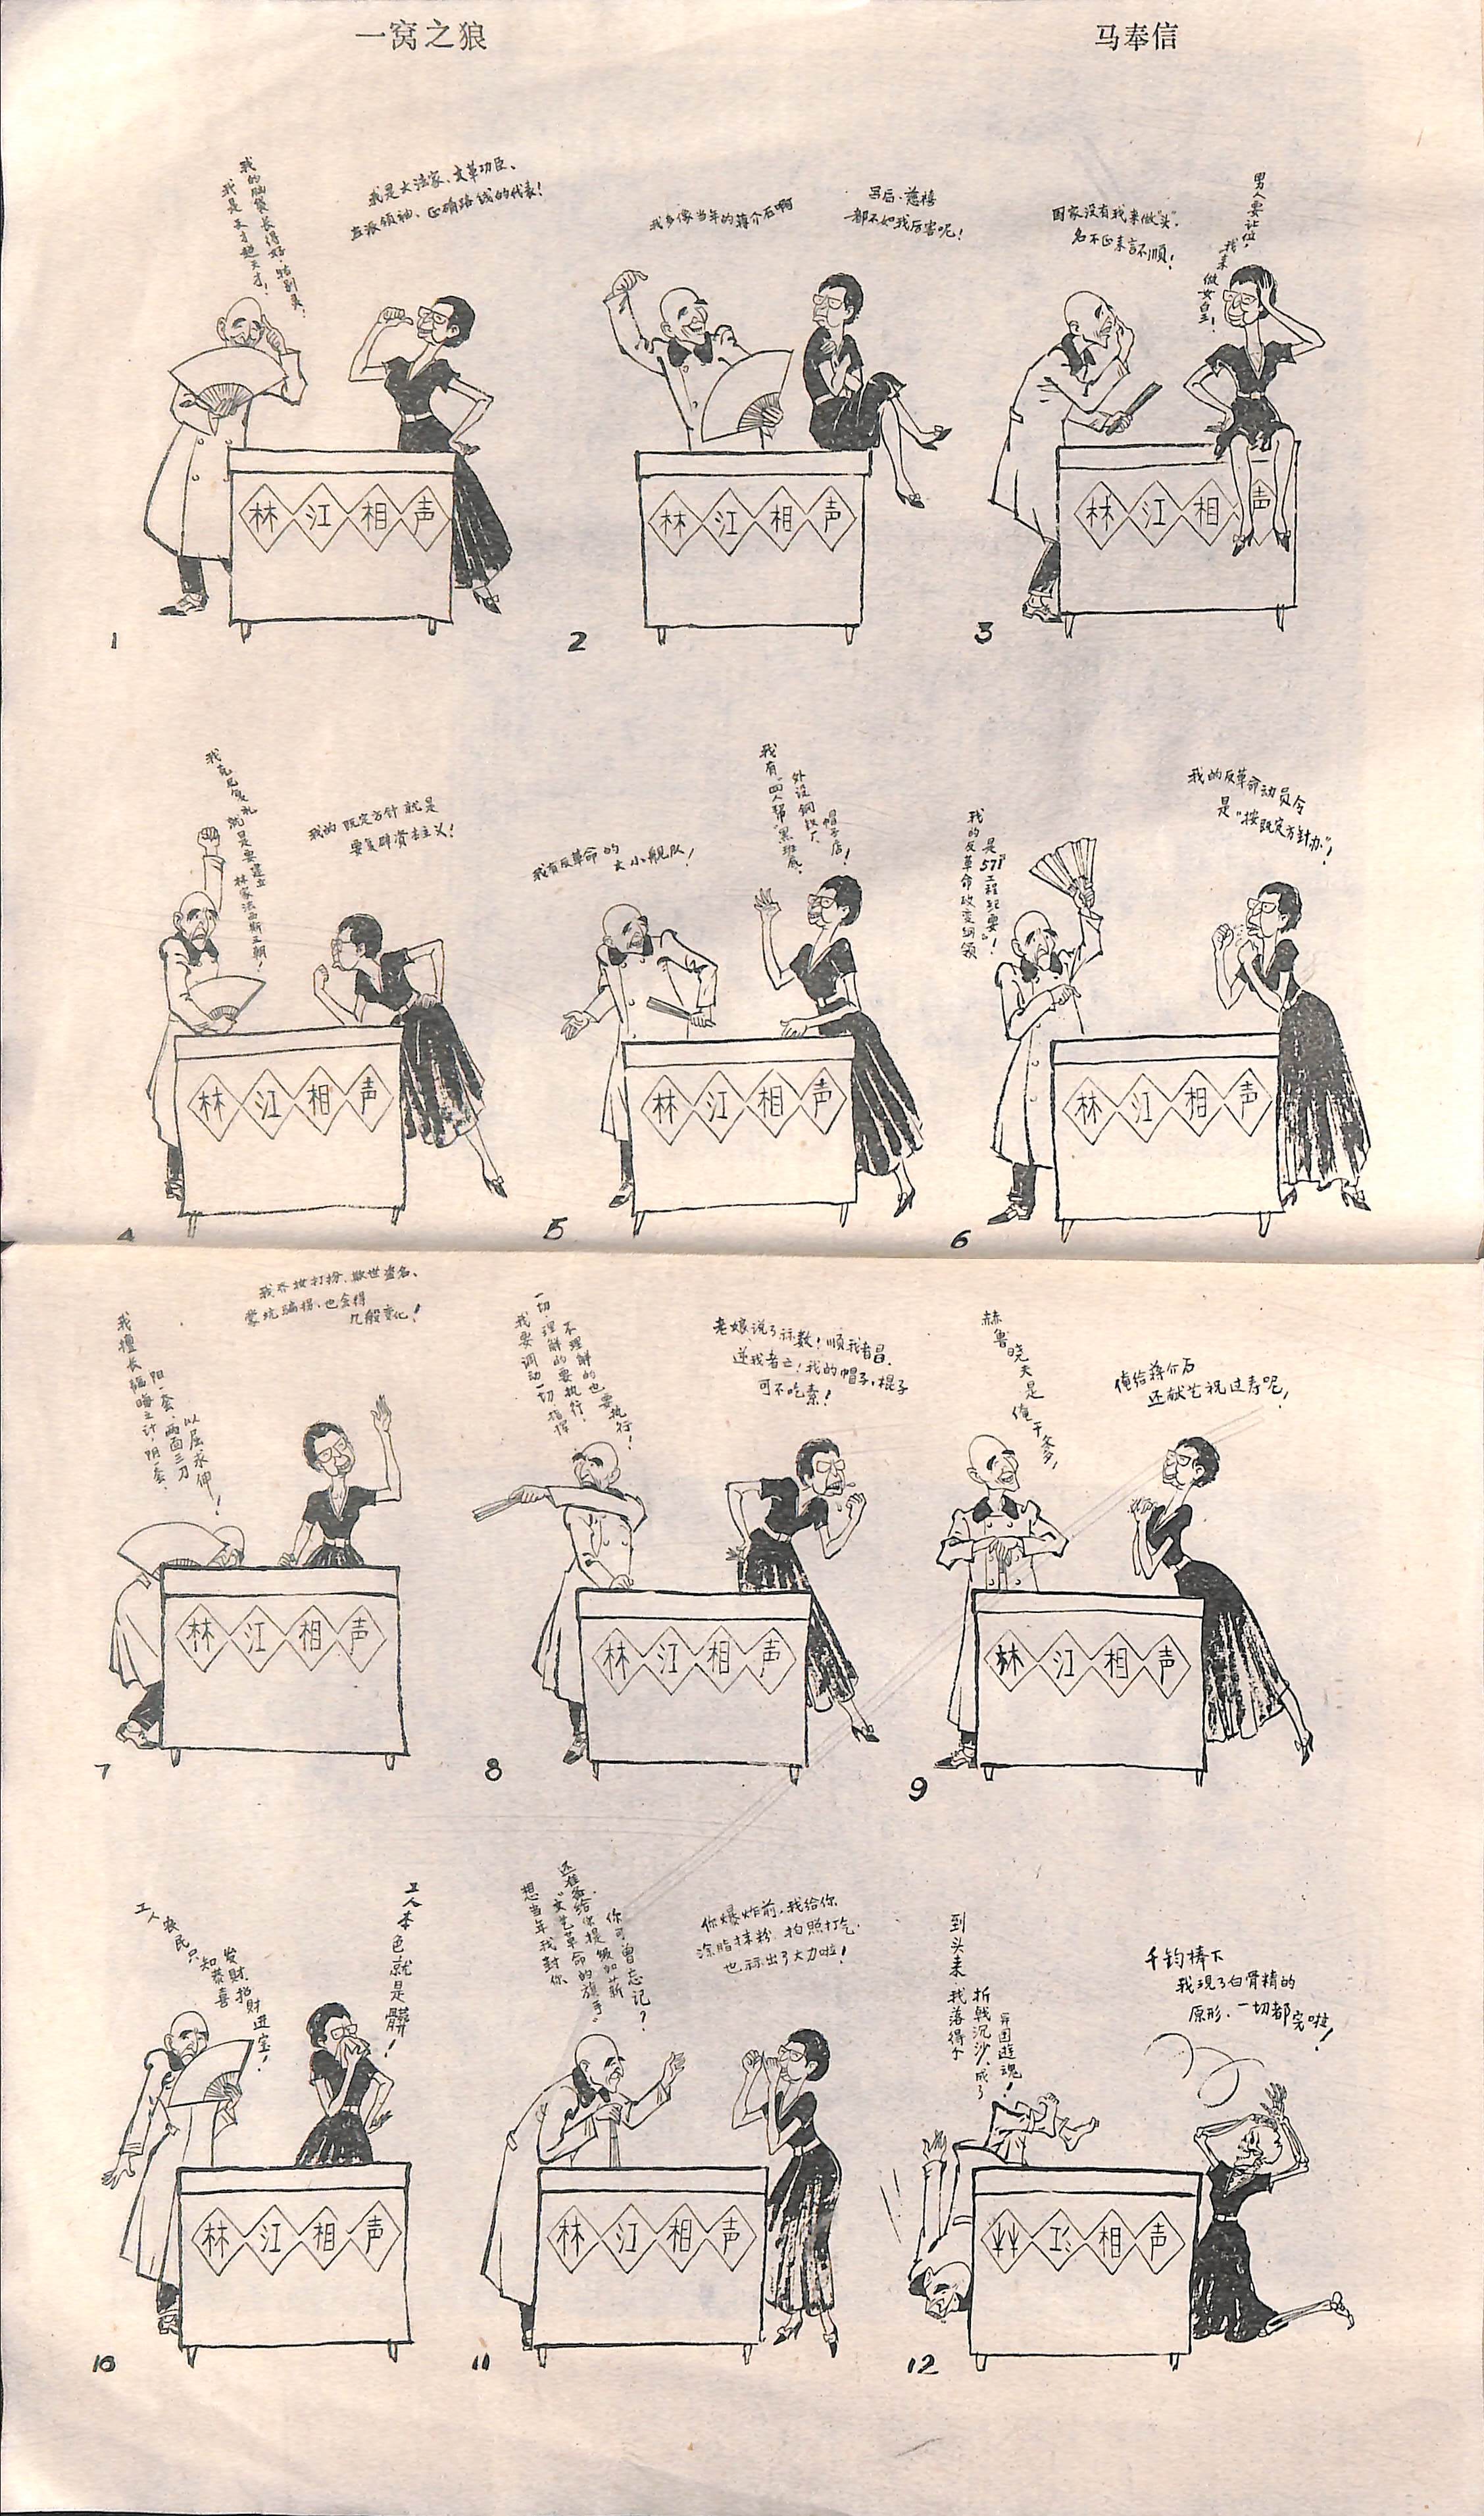 一窝之狼
马奉信
我的脑袋长得好,特别灵,
我是天才超天才!
我是大法家、文革功臣、
左派领袖、正确路线的代表!
林江相声
1
我多像当年的蒋介石啊
吕后、慈禧
都不如我厉害呢!
林江相声
2
国家没有我来做“头”,
名不正来言不顺!
男人要让位,
我来做女皇!
林江相声
3
我克己复礼
就是要建立
林家法西斯王朝!
我的既定方针就是
要复辟资本主义!
林江相声
4
我有反革命的
大小舰队!
我有“四人帮”黑班底,
外设钢铁厂、
帽子店!
林江相声
5
我的反革命政变纲领
是“571工程纪要”!
我的反革命动员令
是“按既定方针办”!
林江相声
6
我擅长韬晦之计,阴一套、
阳一套、两面三刀
以屈求伸!
我乔妆打扮、欺世盗名、
蒙坑骗拐,也会得
几般变化!
林江相声
7
我要调动一切,指挥
一切,理解的要执行,
不理解的也要执行!
老娘说了祘数!顺我者昌,
逆我者亡!我的帽子,棍子
可不吃素!
林江相声
8
赫鲁晓夫是俺干爹,
俺给蒋介石
还献艺祝过寿呢!
林江相声
9
工人农民只知恭喜
发财,招财进宝!
工人本色就是髒!
林江相声
10
想当年我封你
“文艺革命的旗手”
还准备给你提级加薪
你可曾忘记?
你爆炸前,我给你
涂脂抹粉,拍照打气,
也祘出了大力啦!
林江相声
11
到头来,我落得个
折戟沉沙,成了
异国游魂!
千钧棒下
我现了白骨精的
原形,一切都完啦!
相声
12